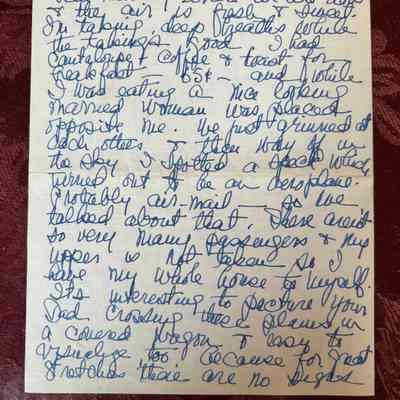 & the air is fresh & sweet.
I'm taking deep breaths while
the taking's good. I had
cantaloupe, coffee & toast for
breakfast – 65¢ – and while
I was eating a nice looking
married woman was placed
opposite me. We just grinned at
each other & then way up in
the sky I spotted a speck which
turned out to be an aeroplane.
Probably air-mail — so we
talked about that. There aren't
so very many passengers & my
upper is not taken so I
have my whole house to myself.
It's interesting to picture your
Dad crossing these plains in
a covered wagon & easy to
visualize too because for great
stretches there are no signs